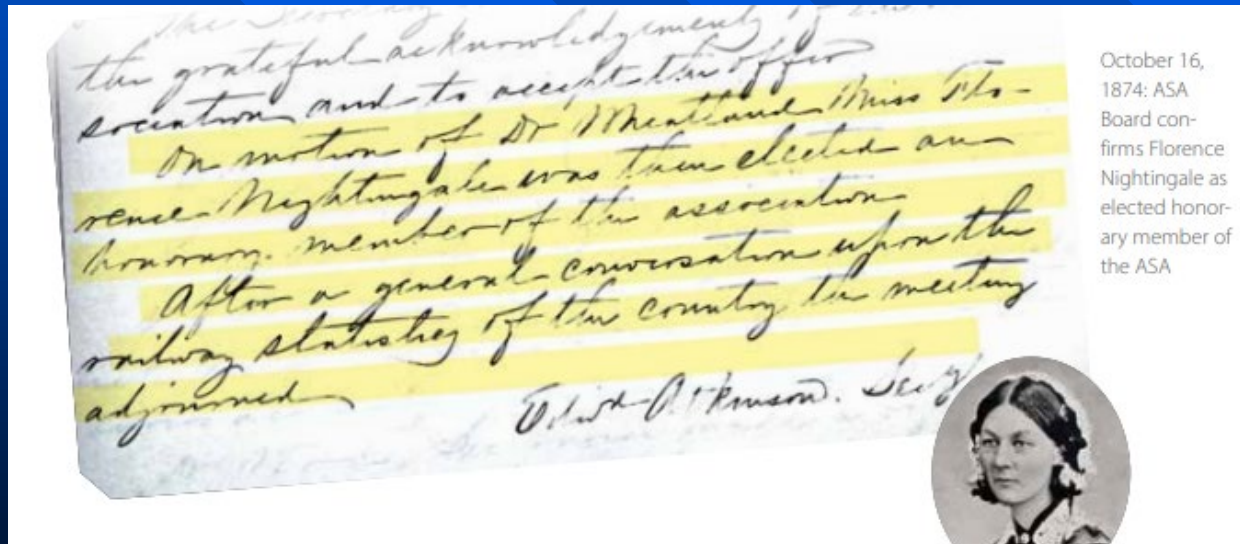 The Secretary
the grateful acknowledgements of
sociation and to accept the offer
On motion of Dr Wheatland Miss Flo-
rence Nightingale was then elected an
honorary member of the association
After a general conversation upon the
railway statistics of the country the meeting
adjourned
Edwd Atkinson. Secy
October 16,
1874: ASA
Board con-
firms Florence
Nightingale as
elected honor-
ary member of
the ASA